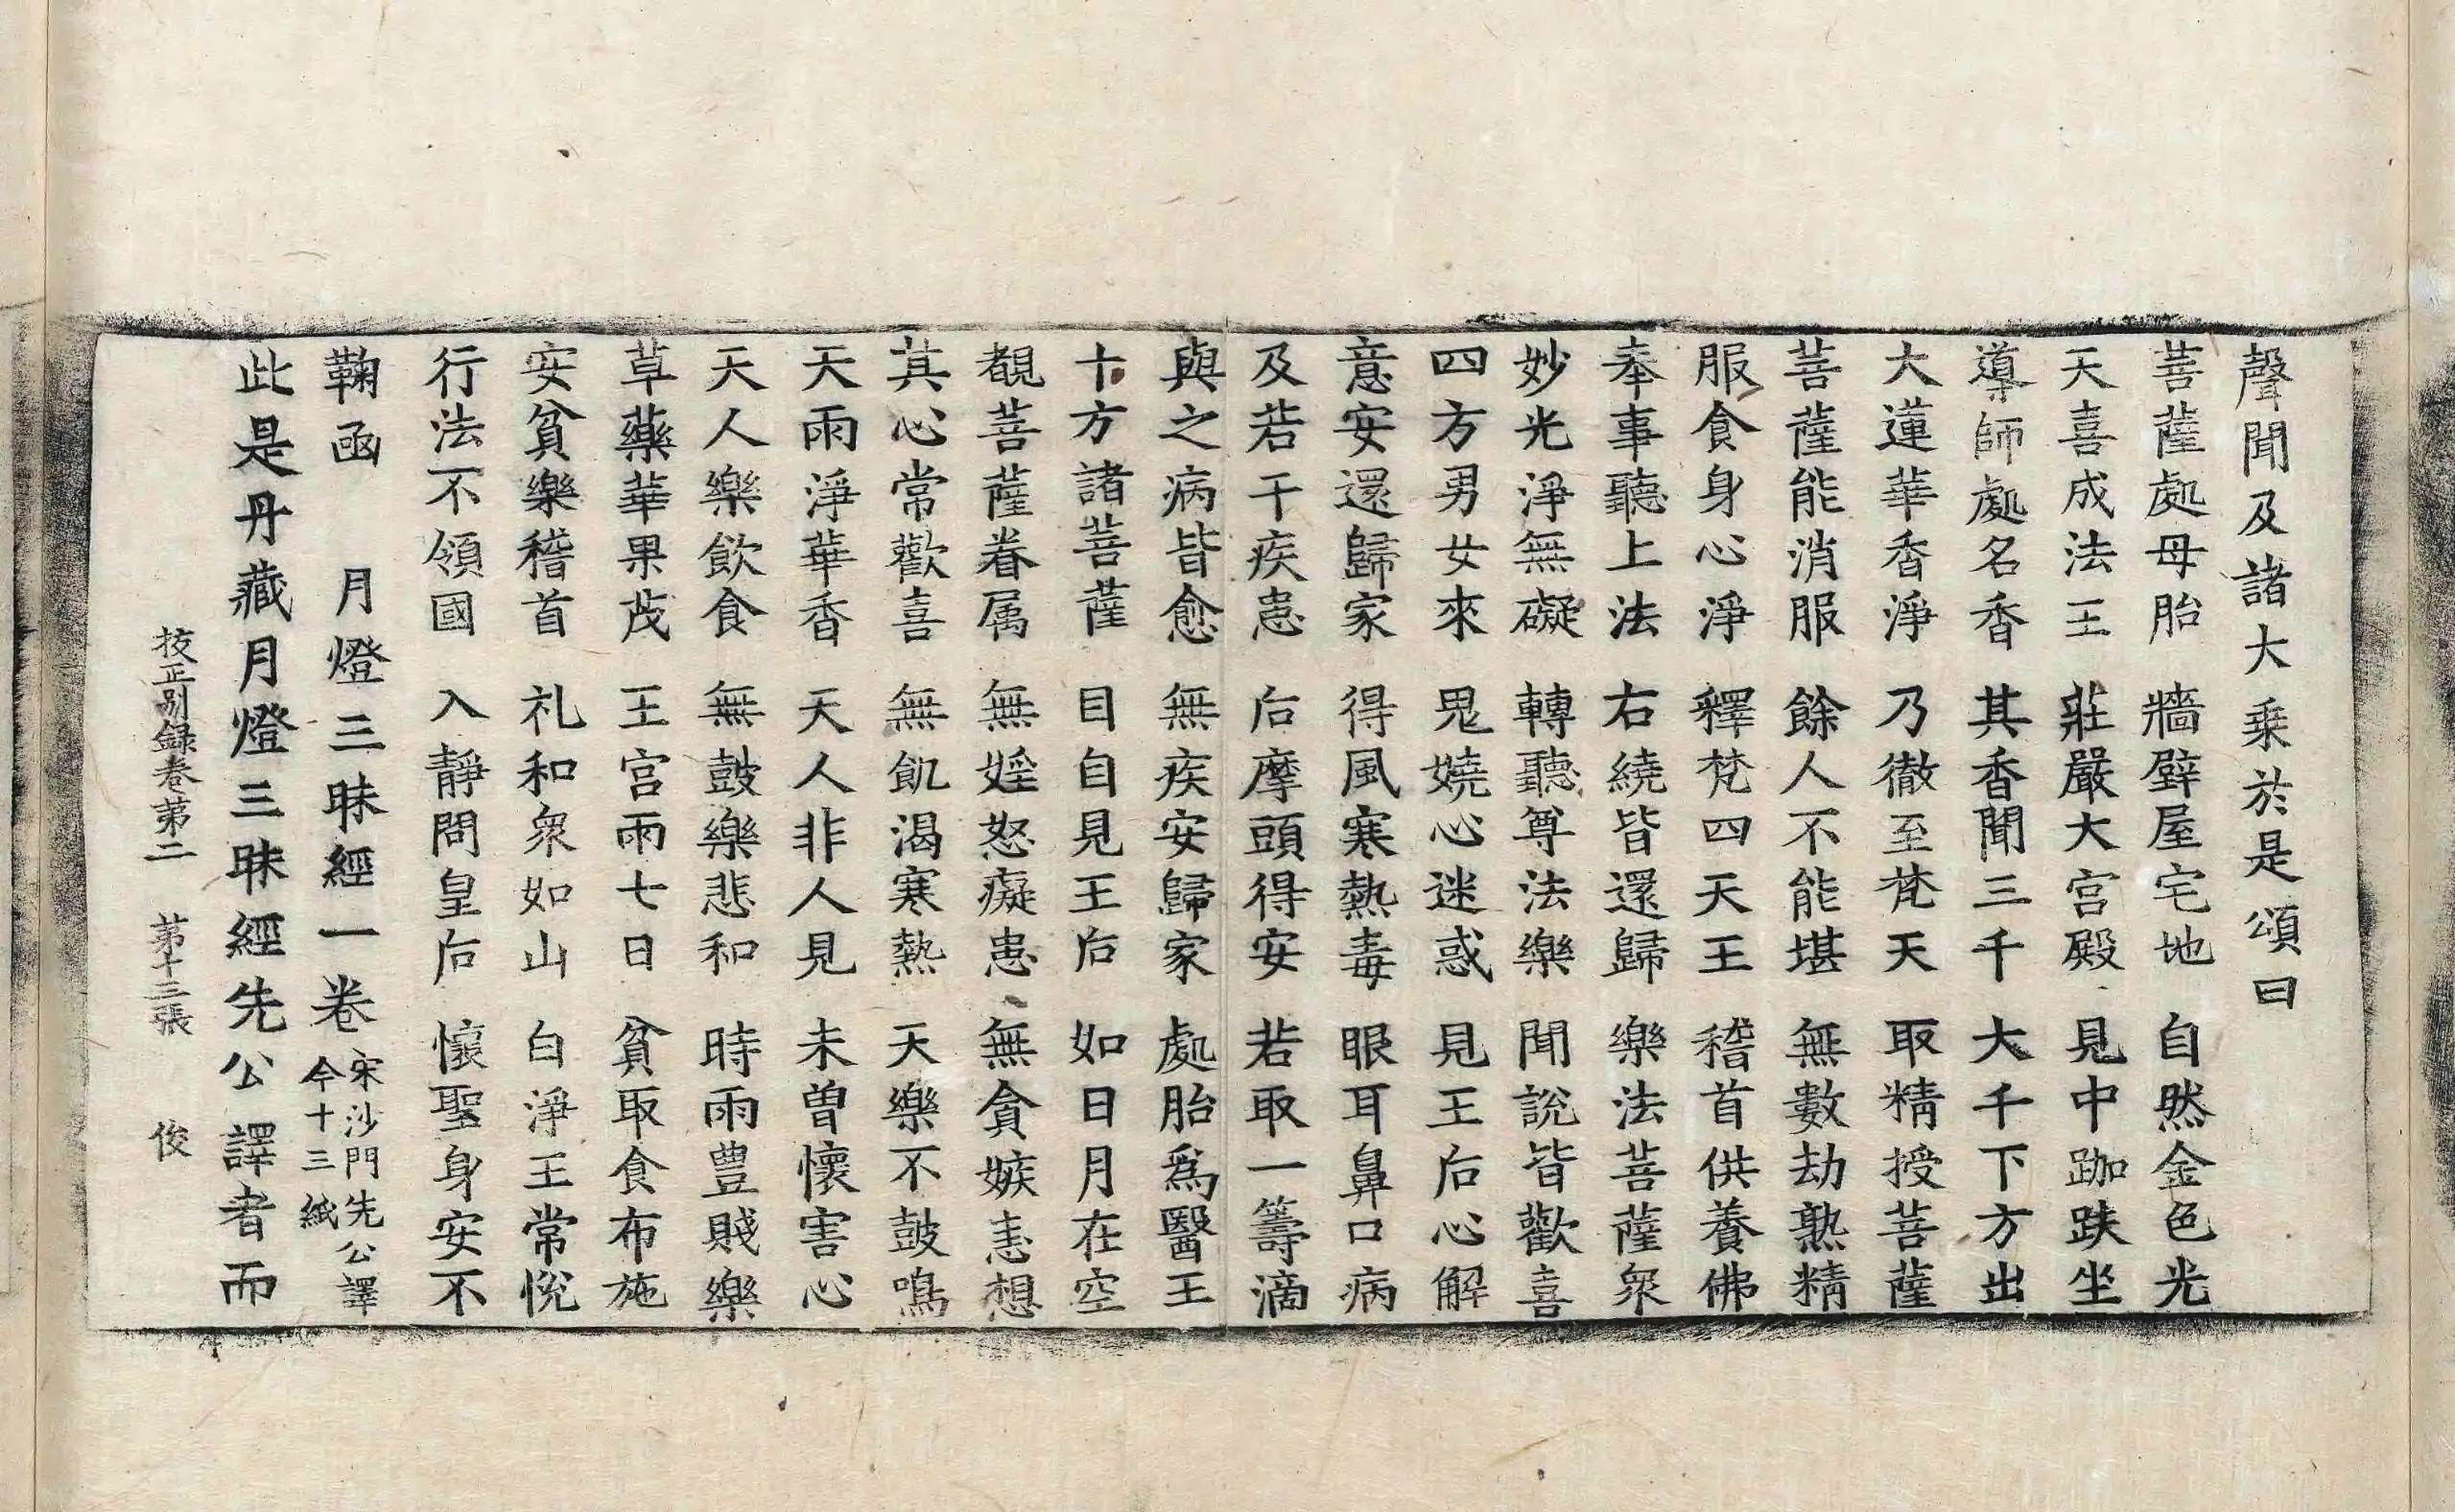 聲聞及諸大乘於是頌曰
菩薩處母胎 牆壁屋宅地 自然金色光
天喜成法王 莊嚴大宮殿 見中跏趺坐
導師處名香 其香聞三千 大千下方出
大蓮華香淨 乃徹至梵天 取精授菩薩
菩薩能消服 餘人不能堪 無數劫熟精
服食身心淨 釋梵四天王 稽首供養佛
奉事聽上法 右繞皆還歸 樂法菩薩衆
妙光淨無礙 轉聽尊法樂 聞說皆歡喜
四方男女來 鬼嬈心迷惑 見王后心解
意安還歸家 得風寒熱毒 眼耳鼻口病
及若干疾患 后摩頭得安 若取一籌滴
與之病皆愈 無疾安歸家 處胎爲醫王
十方諸菩薩 目自見王后 如日月在空
覩菩薩眷属 無婬怒癡患 無貪嫉恚想
其心常歡喜 無飢渴寒熱 天樂不鼓鳴
天雨淨華香 天人非人見 未曾懷害心
天人樂飲食 無鼓樂悲和 時雨豊賤樂
草藥華果茂 王宮雨七日 貧取食布施
安貧樂稽首 礼和衆如山 白淨王常悅
行法不領國 入靜問皇后 懷聖身安不
鞠函 月燈三昧經一卷 宋沙門先公譯 今十三紙
此是丹藏月燈三昧經先公譯者而
挍正别録卷第二 第十三張 俊